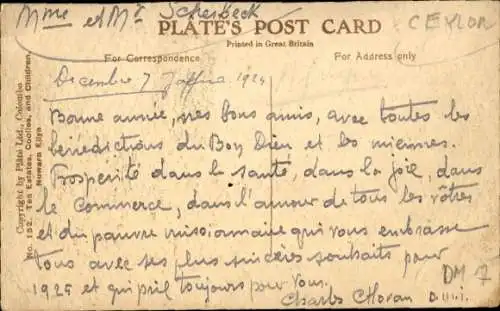 Mme et Mr Scherbeck
PLÂTÉ'S POST CARD
CEYLON
Printed in Great Britain
For Correspondence
For Address only
Decembre 7 1924
Bonne année, mes bons amis, avec toutes les
bénédictions du Bon Dieu et les miennes.
Prosperité dans la santé, dans la joie, dans
le Commerce, dans l'amour de tous les vôtres
et du pauvre missionnaire qui vous embrasse
tous avec ses plus sincères souhaits pour
1925 et qui prie toujours pour vous.
Charles
DM 7
Copyright by Plâté Ltd., Colombo
No. 152. Tea Estates, Coolies, and Children
Nuwara Eliya